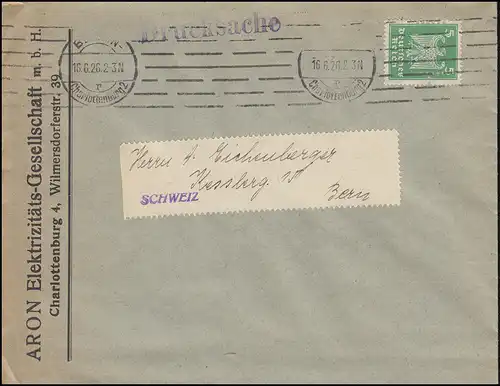 Drucksache
BERLIN
16.6.26.2-3N
r
Charlottenburg 2
16.6.26.2-3N
r
Charlottenburg 2
5 5
Deutsches
Reich
ARON Elektrizitäts-Gesellschaft m. b. H.
Charlottenburg 4, Wilmersdorferstr. 39
Herrn A. Eichenberger
SCHWEIZ
Bern